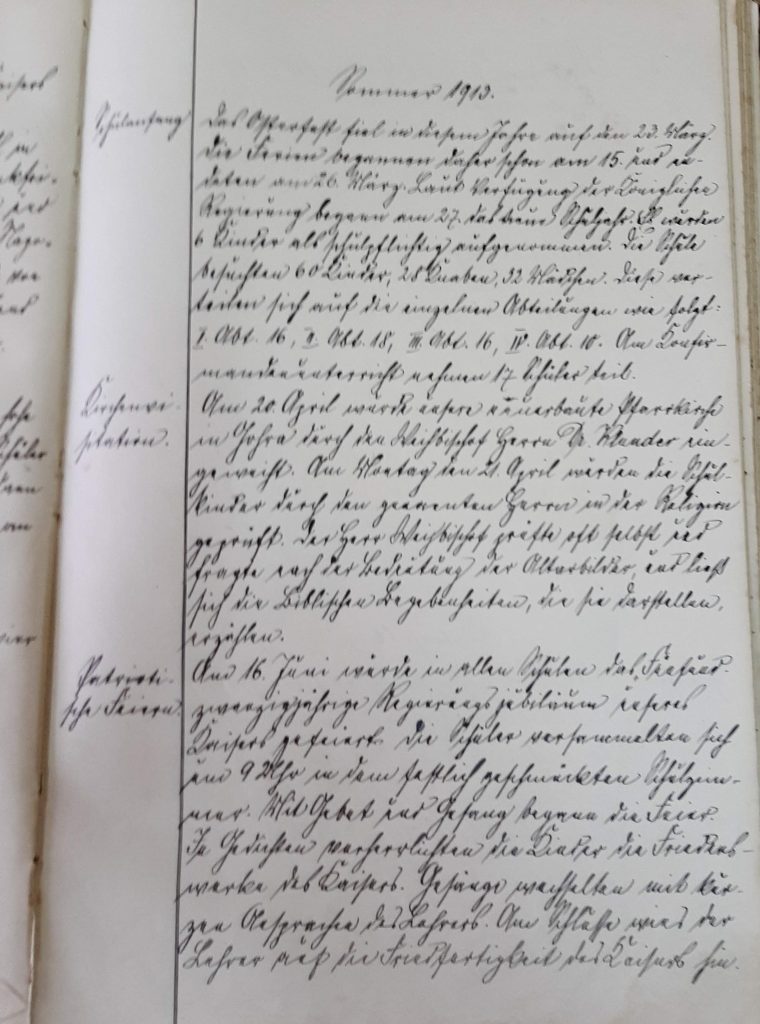 Sommer 1913.
Schulanfang
Das Osterfest fiel in diesem Jahre auf den 23. März.
Die Ferien begannen daher schon am 15. und en-
deten am 26. März. Laut Verfügung der Königlichen
Regierung begann am 27. das neue Schuljahr. Es wurden
6 Kinder als schulpflichtig aufgenommen. Die Schule
besuchten 60 Kinder, 28 Knaben, 32 Mädchen. Diese ver-
teilen sich auf die einzelnen Abteilungen wie folgt:
I. Abt. 16, II. Abt. 18, III. Abt. 16, IV. Abt. 10. Am Konfir-
mandenunterricht nehmen 17 Schüler teil.
Kirchenvi-
sitation.
Am 20. April wurde unsere neuerbaute Pfarrkirche
in Johra durch den Weihbischof Herrn Dr. Klunder ein-
geweiht. Am Montag den 21. April wurden die Schul-
kinder durch den genannten Herrn in der Religion
geprüft. Der Herr Weihbischof prüfte oft selbst und
fragte nach der Bedeutung der Altarbilder, und ließ
sich die Biblischen Begebenheiten, die sie darstellen,
erzählen.
Patrioti-
sche Feiern.
Am 16. Juni wurde in allen Schulen das Fünfund-
zwanzigjährige Regierungsjubiläum unseres
Kaisers gefeiert. Die Schüler versammelten sich
um 9 Uhr in dem festlich geschmückten Schulzim-
mer. Mit Gebet und Gesang begann die Feier.
In Gedichten verherrlichten die Kinder die Friedens-
werke des Kaisers. Gesänge wechselten mit kur-
zen Ansprachen des Lehrers. Am Schlusse wies der
Lehrer auf die Friedfertigkeit des Kaisers hin.